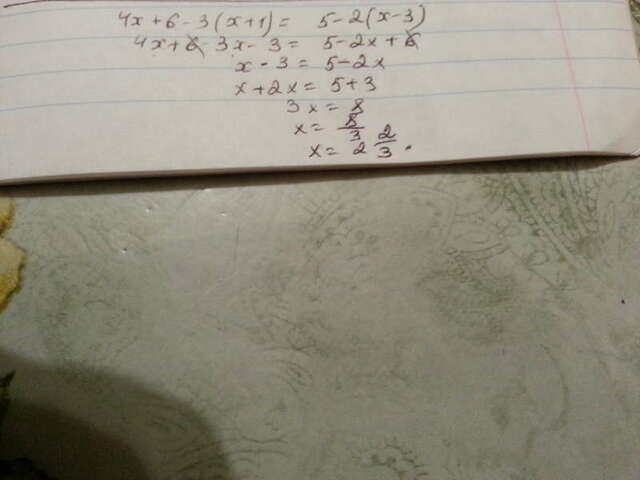 4x+6-3(x+1)= 5-2(x-3)
4x+6-3x-3= 5-2x+6
x-3=5-2x
x+2x=5+3
3x=8
x=8/3
x=2 2/3.